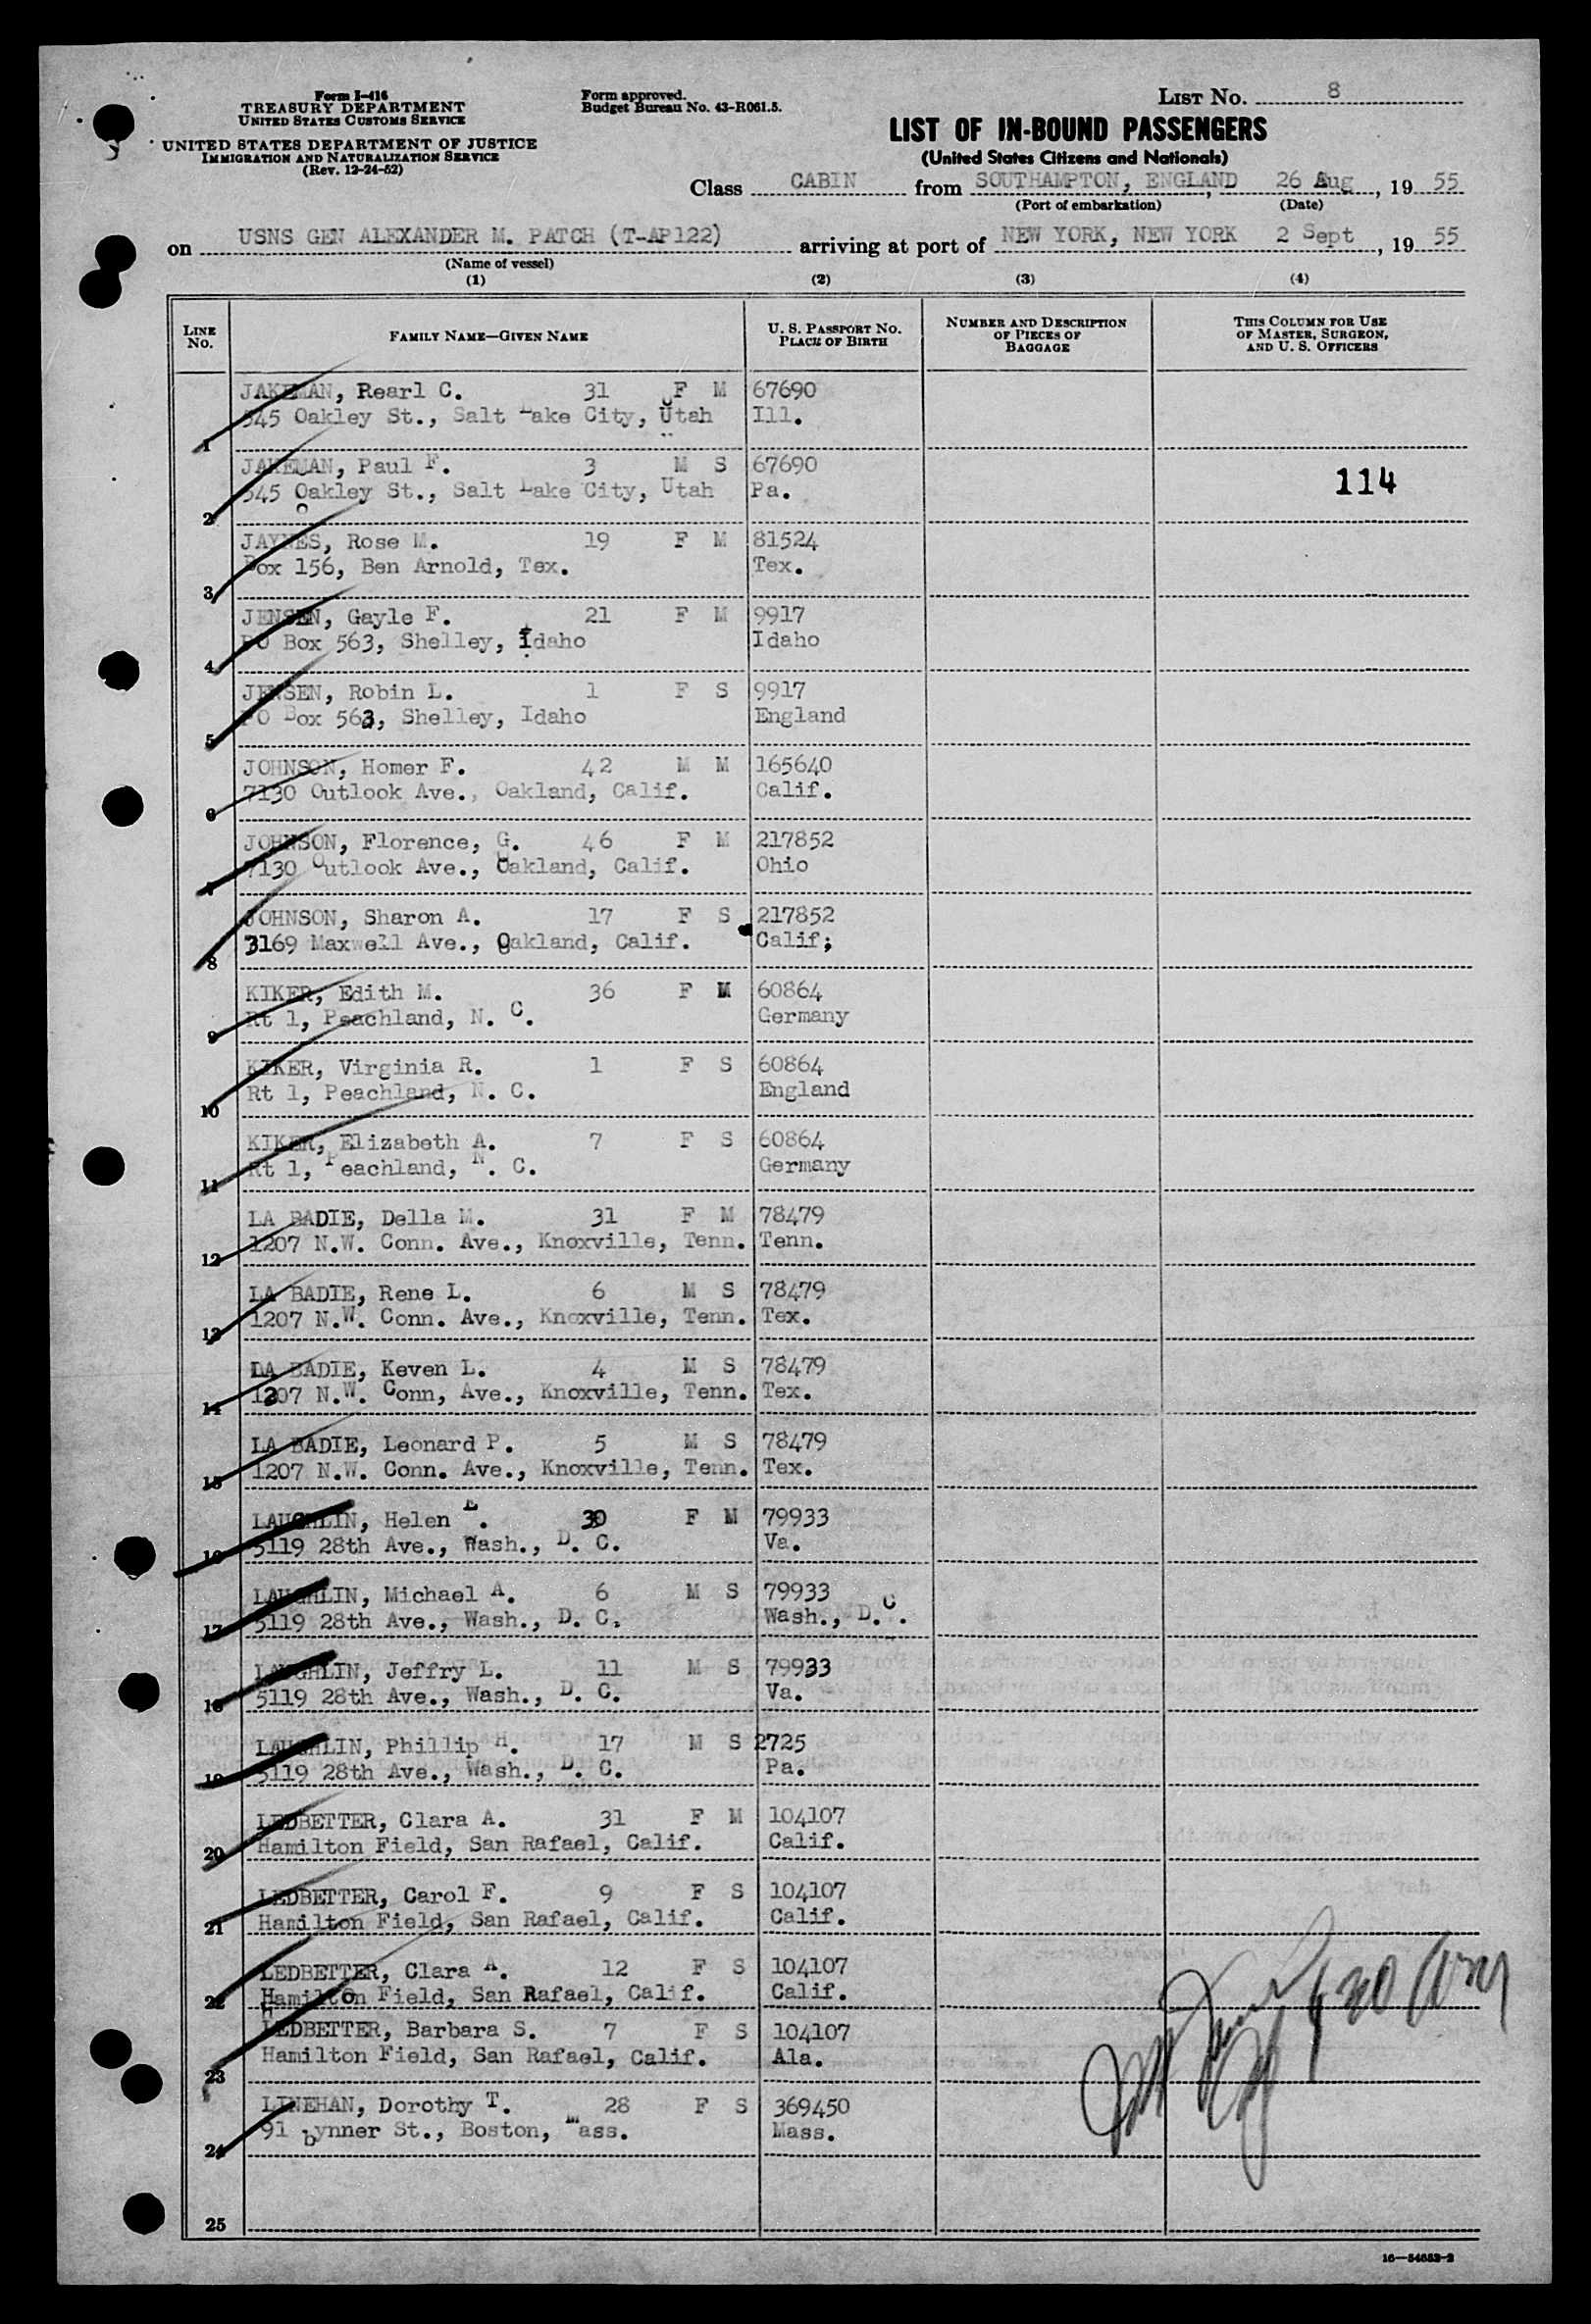 Form I-416
TREASURY DEPARTMENT
UNITED STATES CUSTOMS SERVICE
UNITED STATES DEPARTMENT OF JUSTICE
IMMIGRATION AND NATURALIZATION SERVICE
(Rev. 12-24-52)
Form approved.
Budget Bureau No. 43-R061.5.
LIST NO. 8
LIST OF IN-BOUND PASSENGERS
(United States Citizens and Nationals)
Class CABIN from SOUTHAMPTON, ENGLAND, 26 Aug, 19 55
(Port of embarkation) (Date)
on USNS GEN ALEXANDER M. PATCH (T-AP122) arriving at port of NEW YORK, NEW YORK 2 Sept, 19 55
(Name of vessel)
(1) (2) (3) (4)
LINE NO. FAMILY NAME—GIVEN NAME U. S. PASSPORT NO. PLACE OF BIRTH NUMBER AND DESCRIPTION OF PIECES OF BAGGAGE THIS COLUMN FOR USE OF MASTER, SURGEON, AND U. S. OFFICERS
JAKEMAN, Rearl C. 31 F M 67690
545 Oakley St., Salt Lake City, Utah Ill.
1
JAKEMAN, Paul F. 3 M S 67690
545 Oakley St., Salt Lake City, Utah Pa.
114
2
JAYNES, Rose M. 19 F M 81524
Box 156, Ben Arnold, Tex. Tex.
3
JENSEN, Gayle F. 21 F M 9917
PO Box 563, Shelley, Idaho Idaho
4
JENSEN, Robin L. 1 F S 9917
PO Box 563, Shelley, Idaho England
5
JOHNSON, Homer F. 42 M M 165640
7130 Outlook Ave., Oakland, Calif. Calif.
6
JOHNSON, Florence, G. 46 F M 217852
7130 Outlook Ave., Oakland, Calif. Ohio
7
JOHNSON, Sharon A. 17 F S 217852
3169 Maxwell Ave., Oakland, Calif. Calif;
8
KIKER, Edith M. 36 F M 60864
Rt 1, Peachland, N. C. Germany
9
KIKER, Virginia R. 1 F S 60864
Rt 1, Peachland, N. C. England
10
KIKER, Elizabeth A. 7 F S 60864
Rt 1, Peachland, N. C. Germany
11
LA BADIE, Della M. 31 F M 78479
1207 N.W. Conn. Ave., Knoxville, Tenn. Tenn.
12
LA BADIE, Rene L. 6 M S 78479
1207 N.W. Conn. Ave., Knoxville, Tenn. Tex.
13
LA BADIE, Keven L. 4 M S 78479
1207 N.W. Conn, Ave., Knoxville, Tenn. Tex.
14
LA BADIE, Leonard P. 5 M S 78479
1207 N.W. Conn. Ave., Knoxville, Tenn. Tex.
15
LAUGHLIN, Helen E. 30 F M 79933
5119 28th Ave., Wash., D. C. Va.
16
LAUGHLIN, Michael A. 6 M S 79933
5119 28th Ave., Wash., D. C. Wash., D.C.
17
LAUGHLIN, Jeffry L. 11 M S 79933
5119 28th Ave., Wash., D. C. Va.
18
LAUGHLIN, Phillip H. 17 M S 2725
5119 28th Ave., Wash., D. C. Pa.
19
LEDBETTER, Clara A. 31 F M 104107
Hamilton Field, San Rafael, Calif. Calif.
20
LEDBETTER, Carol F. 9 F S 104107
Hamilton Field, San Rafael, Calif. Calif.
21
LEDBETTER, Clara A. 12 F S 104107
Hamilton Field, San Rafael, Calif. Calif.
22
LEDBETTER, Barbara S. 7 F S 104107
Hamilton Field, San Rafael, Calif. Ala.
23
LINEHAN, Dorothy T. 28 F S 369450
91 bynner St., Boston, mass. Mass.
24
25
16—54652-2